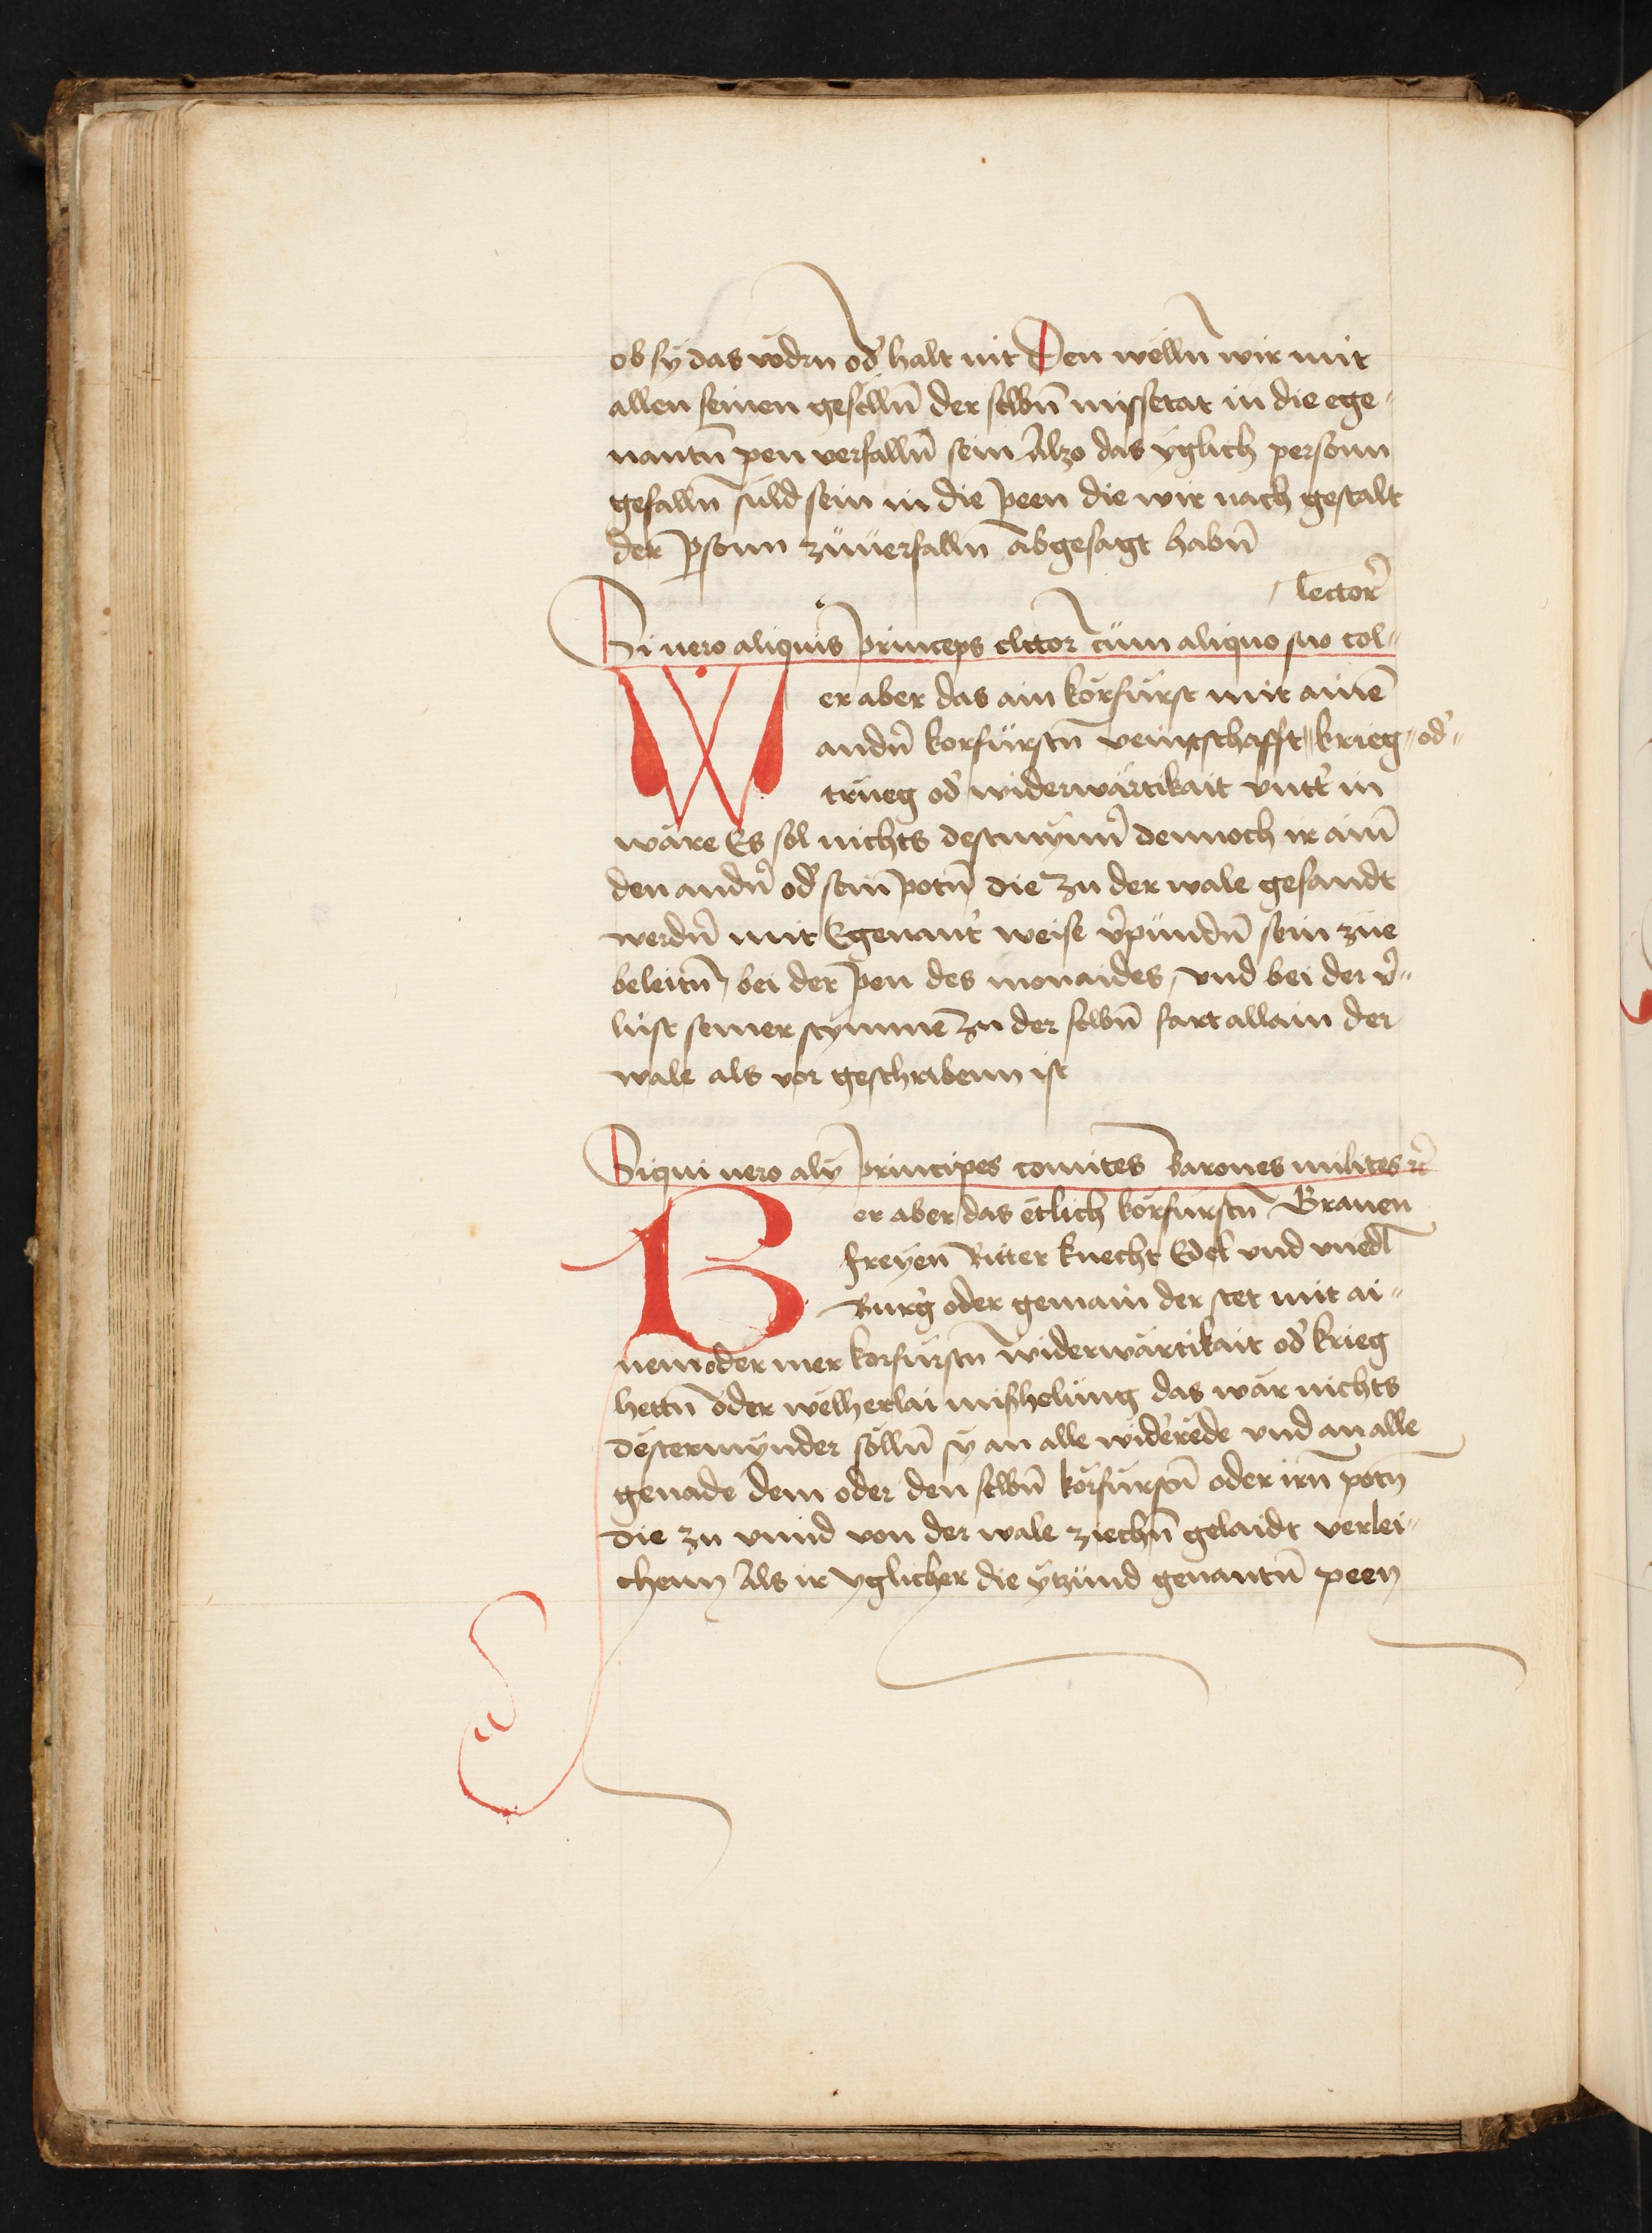 ob sÿ das vödrn od̛ halt nit Den wëlln̄ wir mit
allen seinen gesëlln̄ der selbn̄ missetat in die ege„
nantn̄ pen verfalln̄ sein Alzo das ÿglich personn
gefalln̄ süld sein in die peen die wir nach gestalt
der p̱sonn züuerfalln abgesagt habn̄
lector̛
Si uero aliquis princeps elector cüm aliquo suo col„
Wer aber das ain körfürst mit ainē
andn̛ korfürstn̄ veintschafft„ krieg„ od̛„
trüeg od̛ widerwärtikait vntt̛ in
wäre Es sol nichts destmÿnn̛ dennoch ir ain̄
den andn̛ od̛ sein̄ potn̄ die zu der wale gesandt
werdn̄ mit Egenant̛ weise v̛pündn̄ sein züe
beleitn̄, bei der pen des monaides, vnd bei der v̛„
lüst seiner stÿmmē zu der selbn̄ fart allain der
wale als vor geschribenn ist
Siqui uero alÿ principes comites barones milites ꝛc̄
Wer aber das ëtlich körfürstn̄ Grauen
freÿen Ritter knecht Edel vnd vnedl
Burg̛ oder gemain der stet mit ai„
nem oder mer korfürstn̄ widerwärtikait od̛ krieg
hettn̄ oder wëlherlai mishelüng das wär nichts
dëstermÿnder sölln̄ sÿ an alle wid̛rëde vnd an alle
genade dem oder den selbn̄ körfürstn̄ oder irn̄ potn̄
die zu vnnd von der wale ziechn̄ gelaidt verlei„
chenn Als ir yglicher die ÿtzünd genantn̄ peen